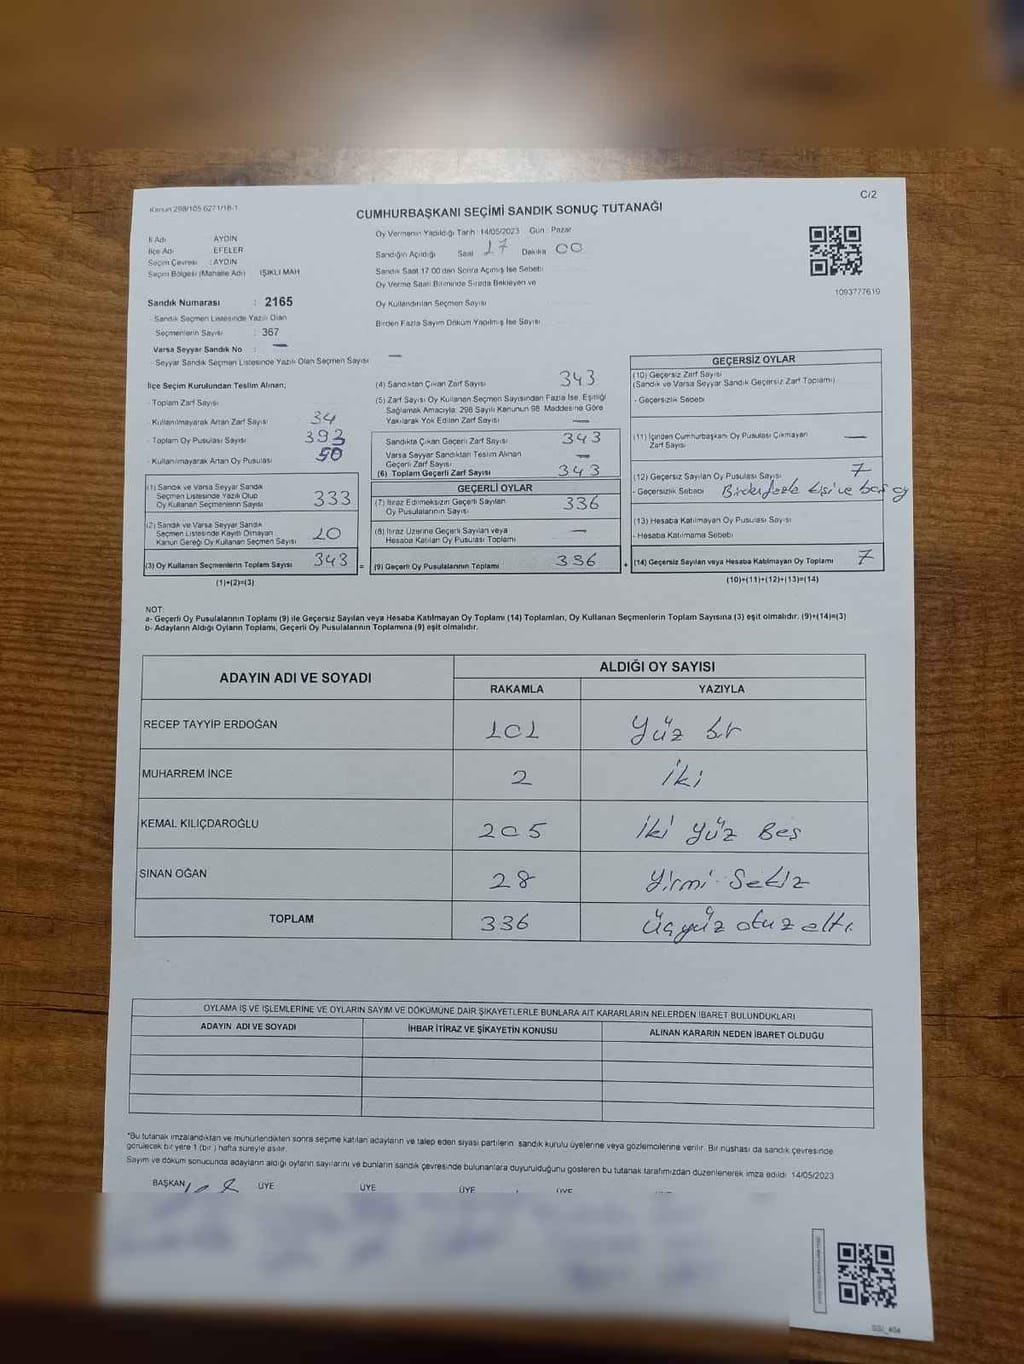 C/2
Kanun 298/105 6271/18-1
CUMHURBAŞKANI SEÇİMİ SANDIK SONUÇ TUTANAĞI
İl Adı AYDIN
İlçe Adı EFELER
Seçim Çevresi : AYDIN
Seçim Bölgesi (Mahalle Adı) IŞIKLI MAH
Sandık Numarası : 2165
- Sandık Seçmen Listesinde Yazılı Olan
Seçmenlerin Sayısı : 367
Varsa Seyyar Sandık No : —
- Seyyar Sandık Seçmen Listesinde Yazılı Olan Seçmen Sayısı —
Oy Vermenin Yapıldığı Tarih : 14/05/2023 Gün : Pazar
Sandığın Açıldığı Saat 17 Dakika 00
Sandık Saat 17:00'den Sonra Açılmış İse Sebebi
Oy Verme Saati Bitiminde Sırada Bekleyen ve
Oy Kullandırılan Seçmen Sayısı
Birden Fazla Sayım Döküm Yapılmış İse Sayısı
1093777619
İlçe Seçim Kurulundan Teslim Alınan;
- Toplam Zarf Sayısı
- Kullanılmayarak Artan Zarf Sayısı 34
- Toplam Oy Pusulası Sayısı 393
- Kullanılmayarak Artan Oy Pusulası 50
(1) Sandık ve Varsa Seyyar Sandık
Seçmen Listesinde Yazılı Olup
Oy Kullanan Seçmenlerin Sayısı 333
(2) Sandık ve Varsa Seyyar Sandık
Seçmen Listesinde Kayıtlı Olmayan
Kanun Gereği Oy Kullanan Seçmen Sayısı 10
(3) Oy Kullanan Seçmenlerin Toplam Sayısı 343 =
(1)+(2)=(3)
(4) Sandıktan Çıkan Zarf Sayısı 343
(5) Zarf Sayısı Oy Kullanan Seçmen Sayısından Fazla İse, Eşitliği
Sağlamak Amacıyla; 298 Sayılı Kanunun 98. Maddesine Göre
Yakılarak Yok Edilen Zarf Sayısı —
Sandıkta Çıkan Geçerli Zarf Sayısı 343
Varsa Seyyar Sandıktan Teslim Alınan
Geçerli Zarf Sayısı —
(6) Toplam Geçerli Zarf Sayısı 343
GEÇERLİ OYLAR
(7) İtiraz Edilmeksizin Geçerli Sayılan
Oy Pusulalarının Sayısı 336
(8) İtiraz Üzerine Geçerli Sayılan veya
Hesaba Katılan Oy Pusulası Toplamı —
(9) Geçerli Oy Pusulalarının Toplamı 336 +
GEÇERSİZ OYLAR
(10) Geçersiz Zarf Sayısı
(Sandık ve Varsa Seyyar Sandık Geçersiz Zarf Toplamı)
- Geçersizlik Sebebi
(11) İçinden Cumhurbaşkanı Oy Pusulası Çıkmayan
Zarf Sayısı —
(12) Geçersiz Sayılan Oy Pusulası Sayısı 7
- Geçersizlik Sebebi Birden fazla kişi ve boş oy
(13) Hesaba Katılmayan Oy Pusulası Sayısı
- Hesaba Katılmama Sebebi
(14) Geçersiz Sayılan veya Hesaba Katılmayan Oy Toplamı 7
(10)+(11)+(12)+(13)=(14)
NOT:
a- Geçerli Oy Pusulalarının Toplamı (9) ile Geçersiz Sayılan veya Hesaba Katılmayan Oy Toplamı (14) Toplamları, Oy Kullanan Seçmenlerin Toplam Sayısına (3) eşit olmalıdır. (9)+(14)=(3)
b- Adayların Aldığı Oyların Toplamı, Geçerli Oy Pusulalarının Toplamına (9) eşit olmalıdır.
ADAYIN ADI VE SOYADI
ALDIĞI OY SAYISI
RAKAMLA YAZIYLA
RECEP TAYYİP ERDOĞAN 101 Yüz bir
MUHARREM İNCE 2 iki
KEMAL KILIÇDAROĞLU 205 iki yüz Beş
SİNAN OĞAN 28 Yirmi Sekiz
TOPLAM 336 Üçyüz otuz altı
OYLAMA İŞ VE İŞLEMLERİNE VE OYLARIN SAYIM VE DÖKÜMÜNE DAİR ŞİKAYETLERLE BUNLARA AİT KARARLARIN NELERDEN İBARET BULUNDUKLARI
ADAYIN ADI VE SOYADI İHBAR İTİRAZ VE ŞİKAYETİN KONUSU ALINAN KARARIN NEDEN İBARET OLDUĞU
*Bu tutanak imzalandıktan ve mühürlendikten sonra seçime katılan adayların ve talep eden siyasi partilerin sandık kurulu üyelerine veya gözlemcilerine verilir. Bir nüshası da sandık çevresinde
görülecek bir yere 1 (bir) hafta süreyle asılır.
Sayım ve döküm sonucunda adayların aldığı oyların sayılarını ve bunların sandık çevresinde bulunanlara duyurulduğunu gösteren bu tutanak tarafımızdan düzenlenerek imza edildi. 14/05/2023
BAŞKAN ÜYE ÜYE ÜYE ÜYE